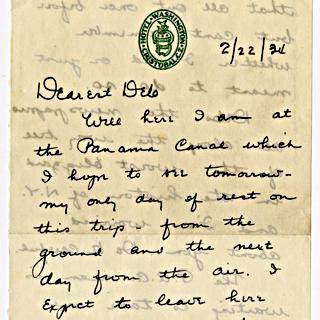 HOTEL WASHINGTON
CRISTOBAL C.Z.
2/22/34
Dearest Deb
Well here I am at
the Panama Canal which
I hope to see tomorrow-
my only day of rest on
this trip - from the
ground and the next
day from the air. I
expect to leave here